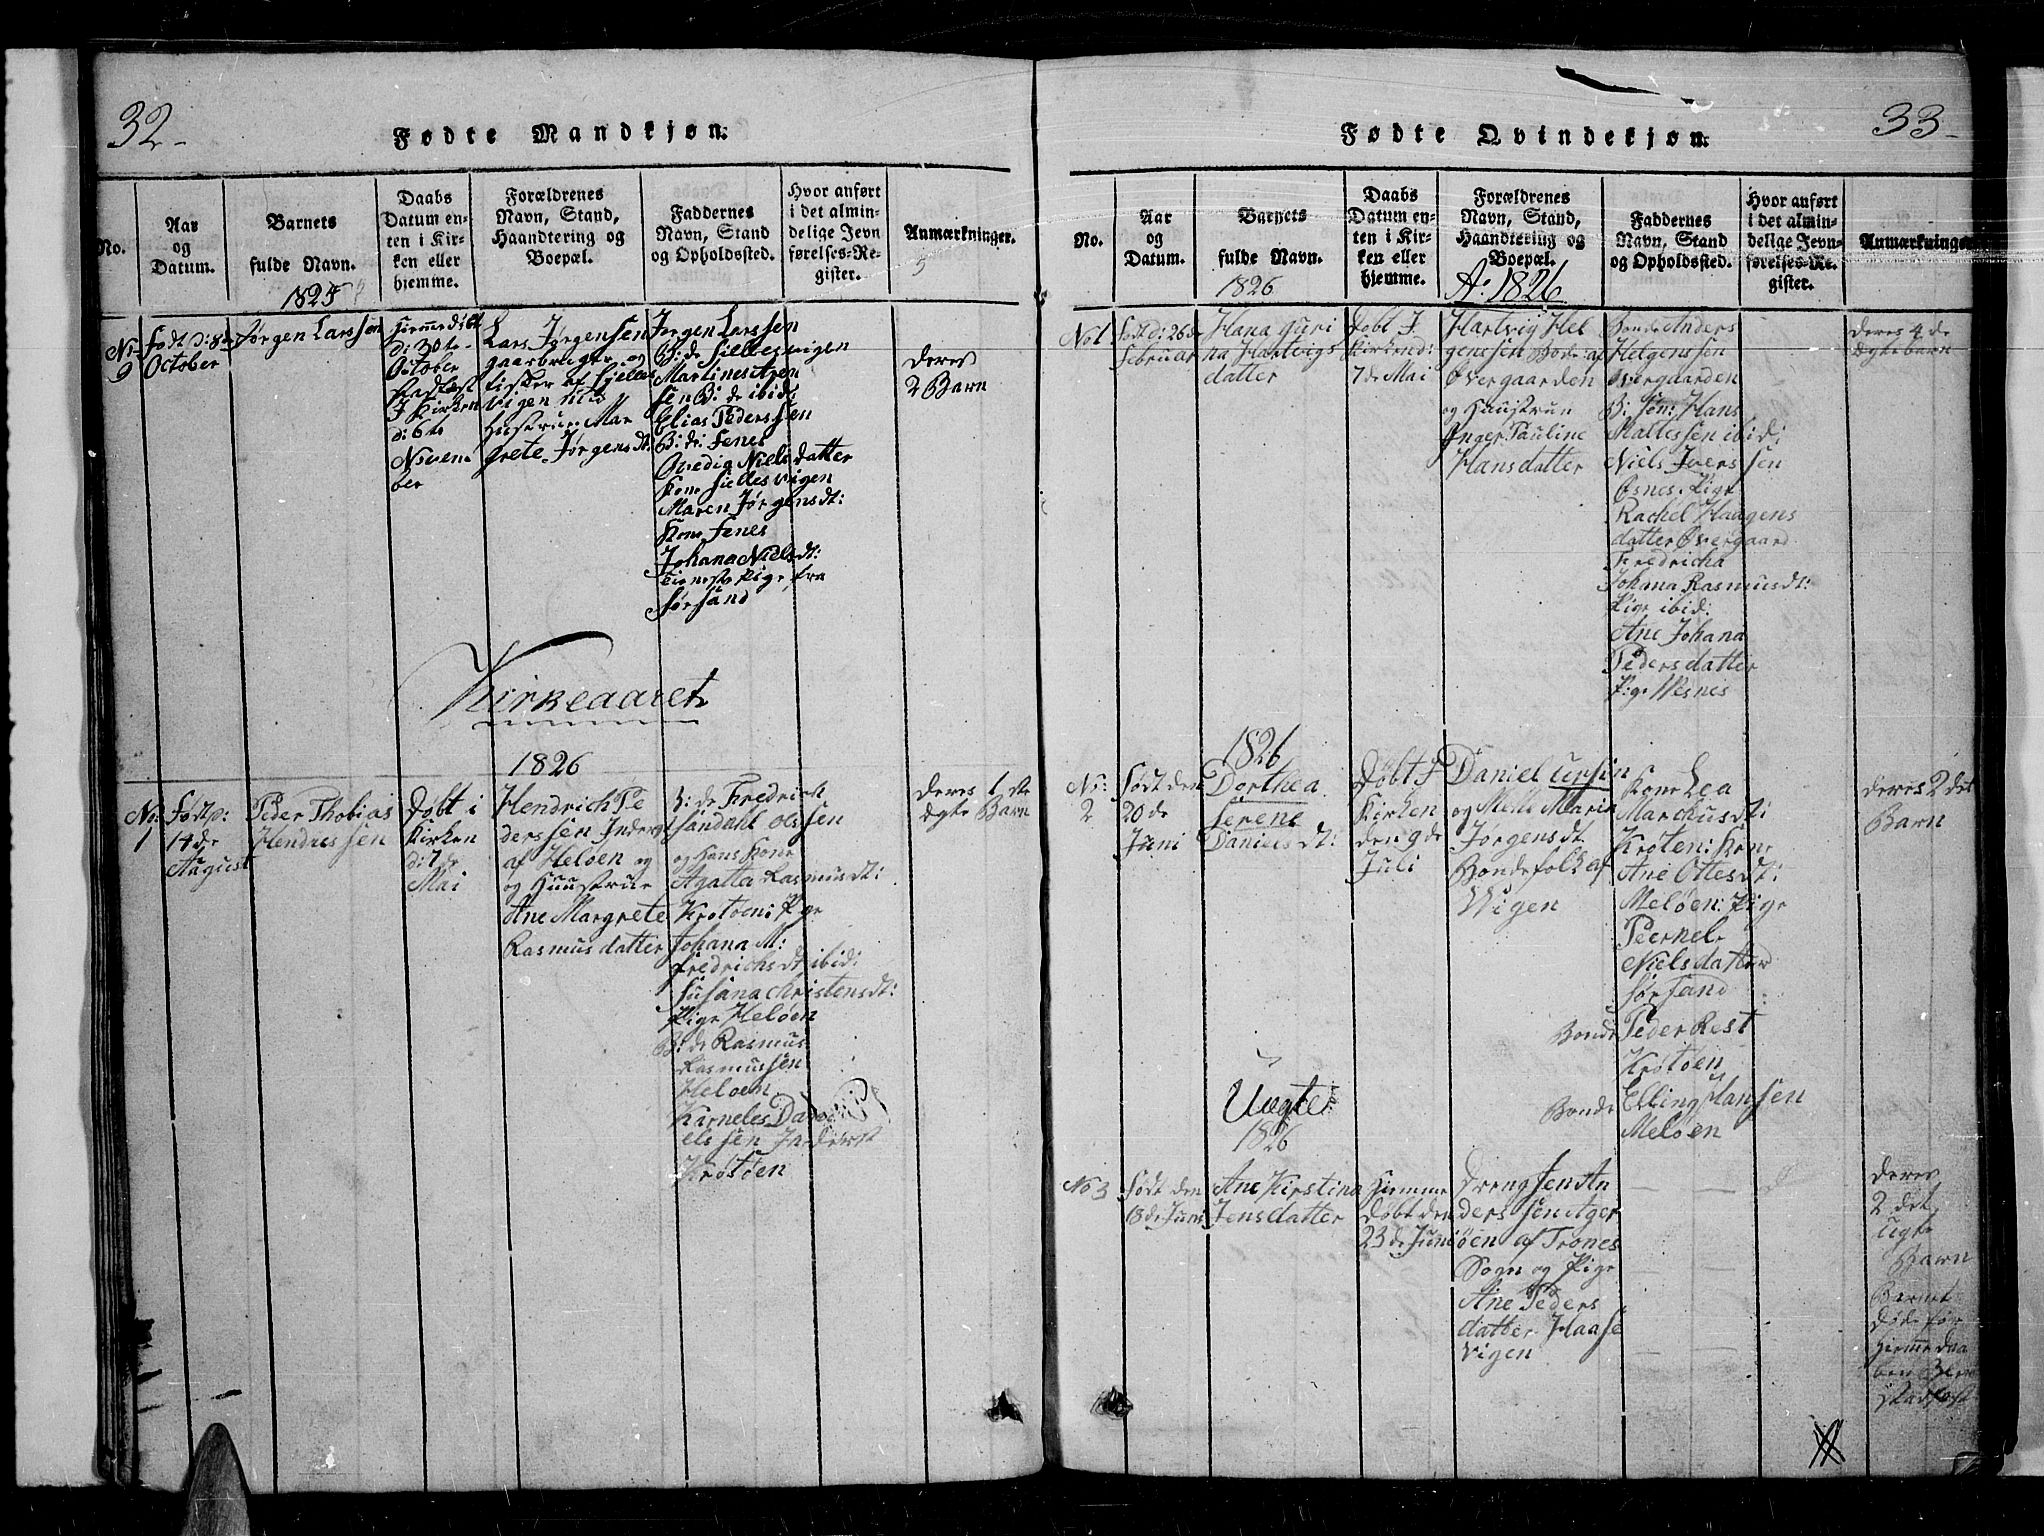 32
Fødte Mandkjøn.
No.
Aar
og
Datum.
Barnets
fulde Navn.
1825
Daabs
Datum en-
ten i Kir-
ken eller
hjemme.
Forældrenes
Navn, Stand,
Haandtering og
Boepæl.
Faddernes
Navn, Stand
og Opholdssted.
Hvor anført
i det almin-
delige Jevn
førelses-Re-
gister.
Anmærkninger.
No
9
født d: 8de
October
Jørgen Larssøn
hjemmedøbt
d: 30te
October
stadfæst
I Kirken
d: 6te
Novem
ber
Lars Jørgenssen
gaardbruger og
fisker af
vigen med
Hustrue Mar
grete Jørgensdt:
Jørgen Larssen
B:de Selles vigen
Martines Azen
sen B: de ibid:
Elias Pederssen
B: de: Fenes
Niels datter
Kone Selles vigen
Maren Jørgensdt:
Kone Fenes
Johana Nielsdt:
tieneste Pige fra
Sørsand
deres
2 Barn
Kirkeaaret
1826
No:
1
Født d:
14de
August
Peder Thobias
Hendrcssen
døbt i
Kirken
d: 7de
Mai
Hendrich Pe
derssen Inderst
af Heløen og
og Huustrue
Ane Margrete
Rasmus datter
B: de Fredrich
Sandahl Olssen
og Hans Kone
Agatta Rasmusdt:
Krotøen: Pige
Johana M:
Fredrichsdt ibid:
Susana Kristensdt:
Pige Heløen
B: de Rasmus
Rasmussen
Heloen
Karneles Dani
elssen Inderst
Krøtøen
deres 1ste
Ægte Barn
33
Fødte Qvindekjøn.
No.
Aar
og
Datum.
Barnets
fulde Navn.
1826
Daabs
Datum en-
ten i Kir-
ken eller
hjemme.
Forældrenes
Navn, Stand,
Haandtering og
Boepæl.
A: 1826
Faddernes
Navn, Stand
og Opholdssted.
Hvor anført
i det almin-
delige Jevn-
førelses-Re-
gister.
Anmærkninger
No 1
født d: 26de
Februar
Hana Guri
na Hartvigs
datter
Døbt I
Kirken d:
7de Mai
Hartvig Hel
genssen Bode af
Overgaarden
og Huustrue
Inger Pauline
Hans datter
Bonde Anders
Helgenssen
Overgaarden
B: Søn: Hans
Mattessen ibid:
Niels Iverssen
Osnes. Pige
Rachel Haagens
datter Overgaard
Fredricha
Johana Rasmusdt:
Pige ibid:
Ane Johana
Peders datter
Pige Wesnes
deres 4de
Ægte barn
1826
No:
2
Født den
20de
Juni
Dorthea
Serene
Daniels dt:
Døbt I
Kirken
den 9de
Juli
Daniel Ursin
og Mette Maria
Jørgensdt
Bondefolk af
Wigen
Kone Lea
Marchusdt:
Krøten: Kone
Ane Ottesdt:
Meløen: Pige
Peernel
Nielsdatter
Sørsand
Bonde Peder Rest
Krøtøen
Bonde Elling Hansen
Meløen
deres 2det
Barn
Uægte
1826
No 3
Født den
18de Juni
Ane Kirstina
Jensdatter
Hjemme
døbt den
23de Juni
Dreng Jens An
derssen Ager
øen af Trones
Sogn og Pige
Ane Peders
datter Haase
vigen
deres
2det
Uægte
Barn
Barnet
døde før
Hjemmedaa
ben blev
stadfæst